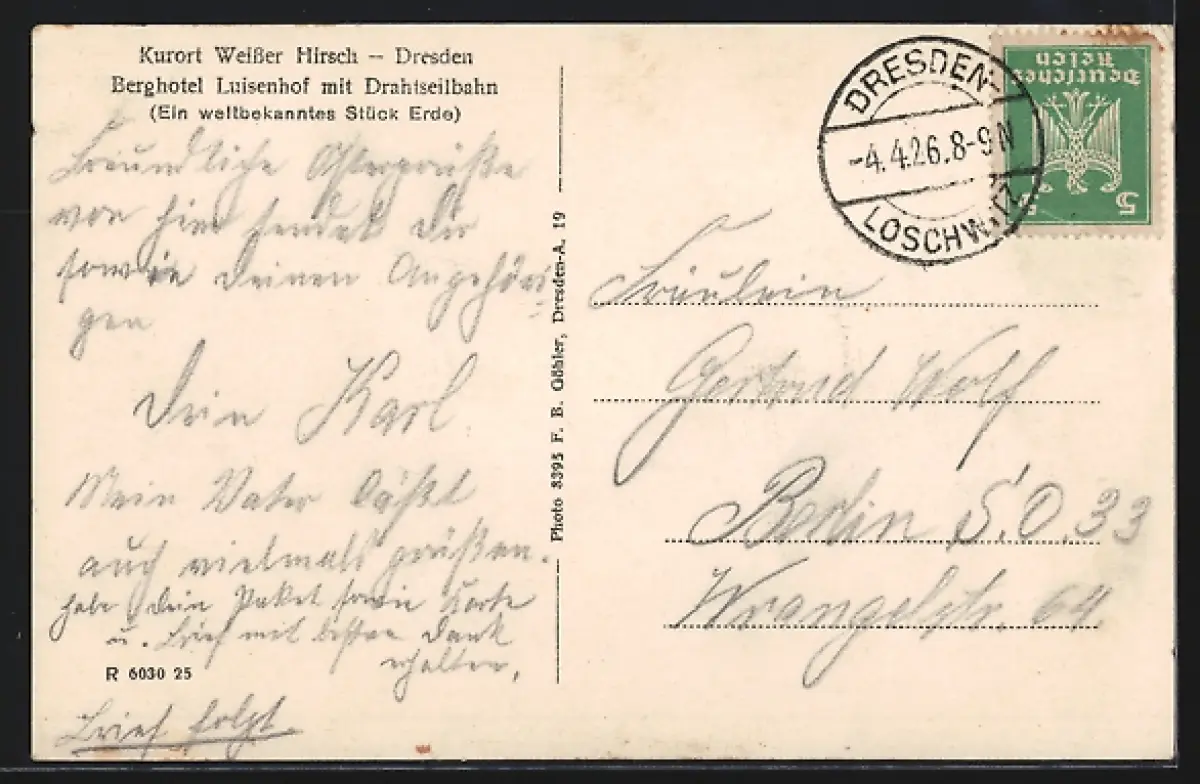 Kurort Weißer Hirsch – Dresden
Berghotel Luisenhof mit Drahtseilbahn
(Ein weltbekanntes Stück Erde)
Freundliche Ostergrüße
von hier sendet Dir
sowie Deinen Angehöri-
gen
Dein Karl.
Mein Vater läßt
auch vielmals grüßen.
habe Dein Paket sowie Karte
u. Brief mit besten Dank
erhalten,
R 6030 25
Brief folgt.
Photo 8395 F. B. Göhler, Dresden-A. 19
DRESDEN-
-4.4.26.8-9N
LOSCHWITZ
Deutsches
Reich
5 5
Fräulein
Gertrud Wolf
Berlin S.O. 33
Wrangelstr. 64